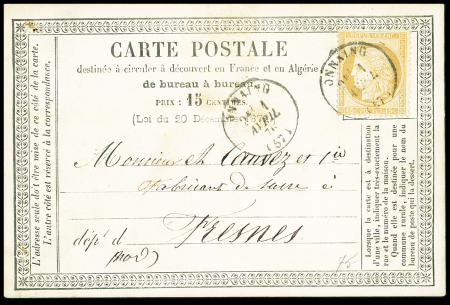 CARTE POSTALE
destinée à circuler à découvert en France et en Algérie
de bureau à bureau
PRIX : 15 CENTIMES.
(Loi du 20 Décembre 187
ONNAING
AVRIL
(57)
ONNAING
Monsieur Ch
Fabricant de sucre à
Fresnes
dépt d
nord
L'adresse seule doit être mise de ce côté de la carte.
L'autre côté est réservé à la correspondance.
Lorsque la carte est à destination
d'une ville, indiquer très-exactement la
rue et le numéro de la maison.
Quand elle est destinée pour une
commune rurale, indiquer le nom du
bureau de poste qui la dessert.
75